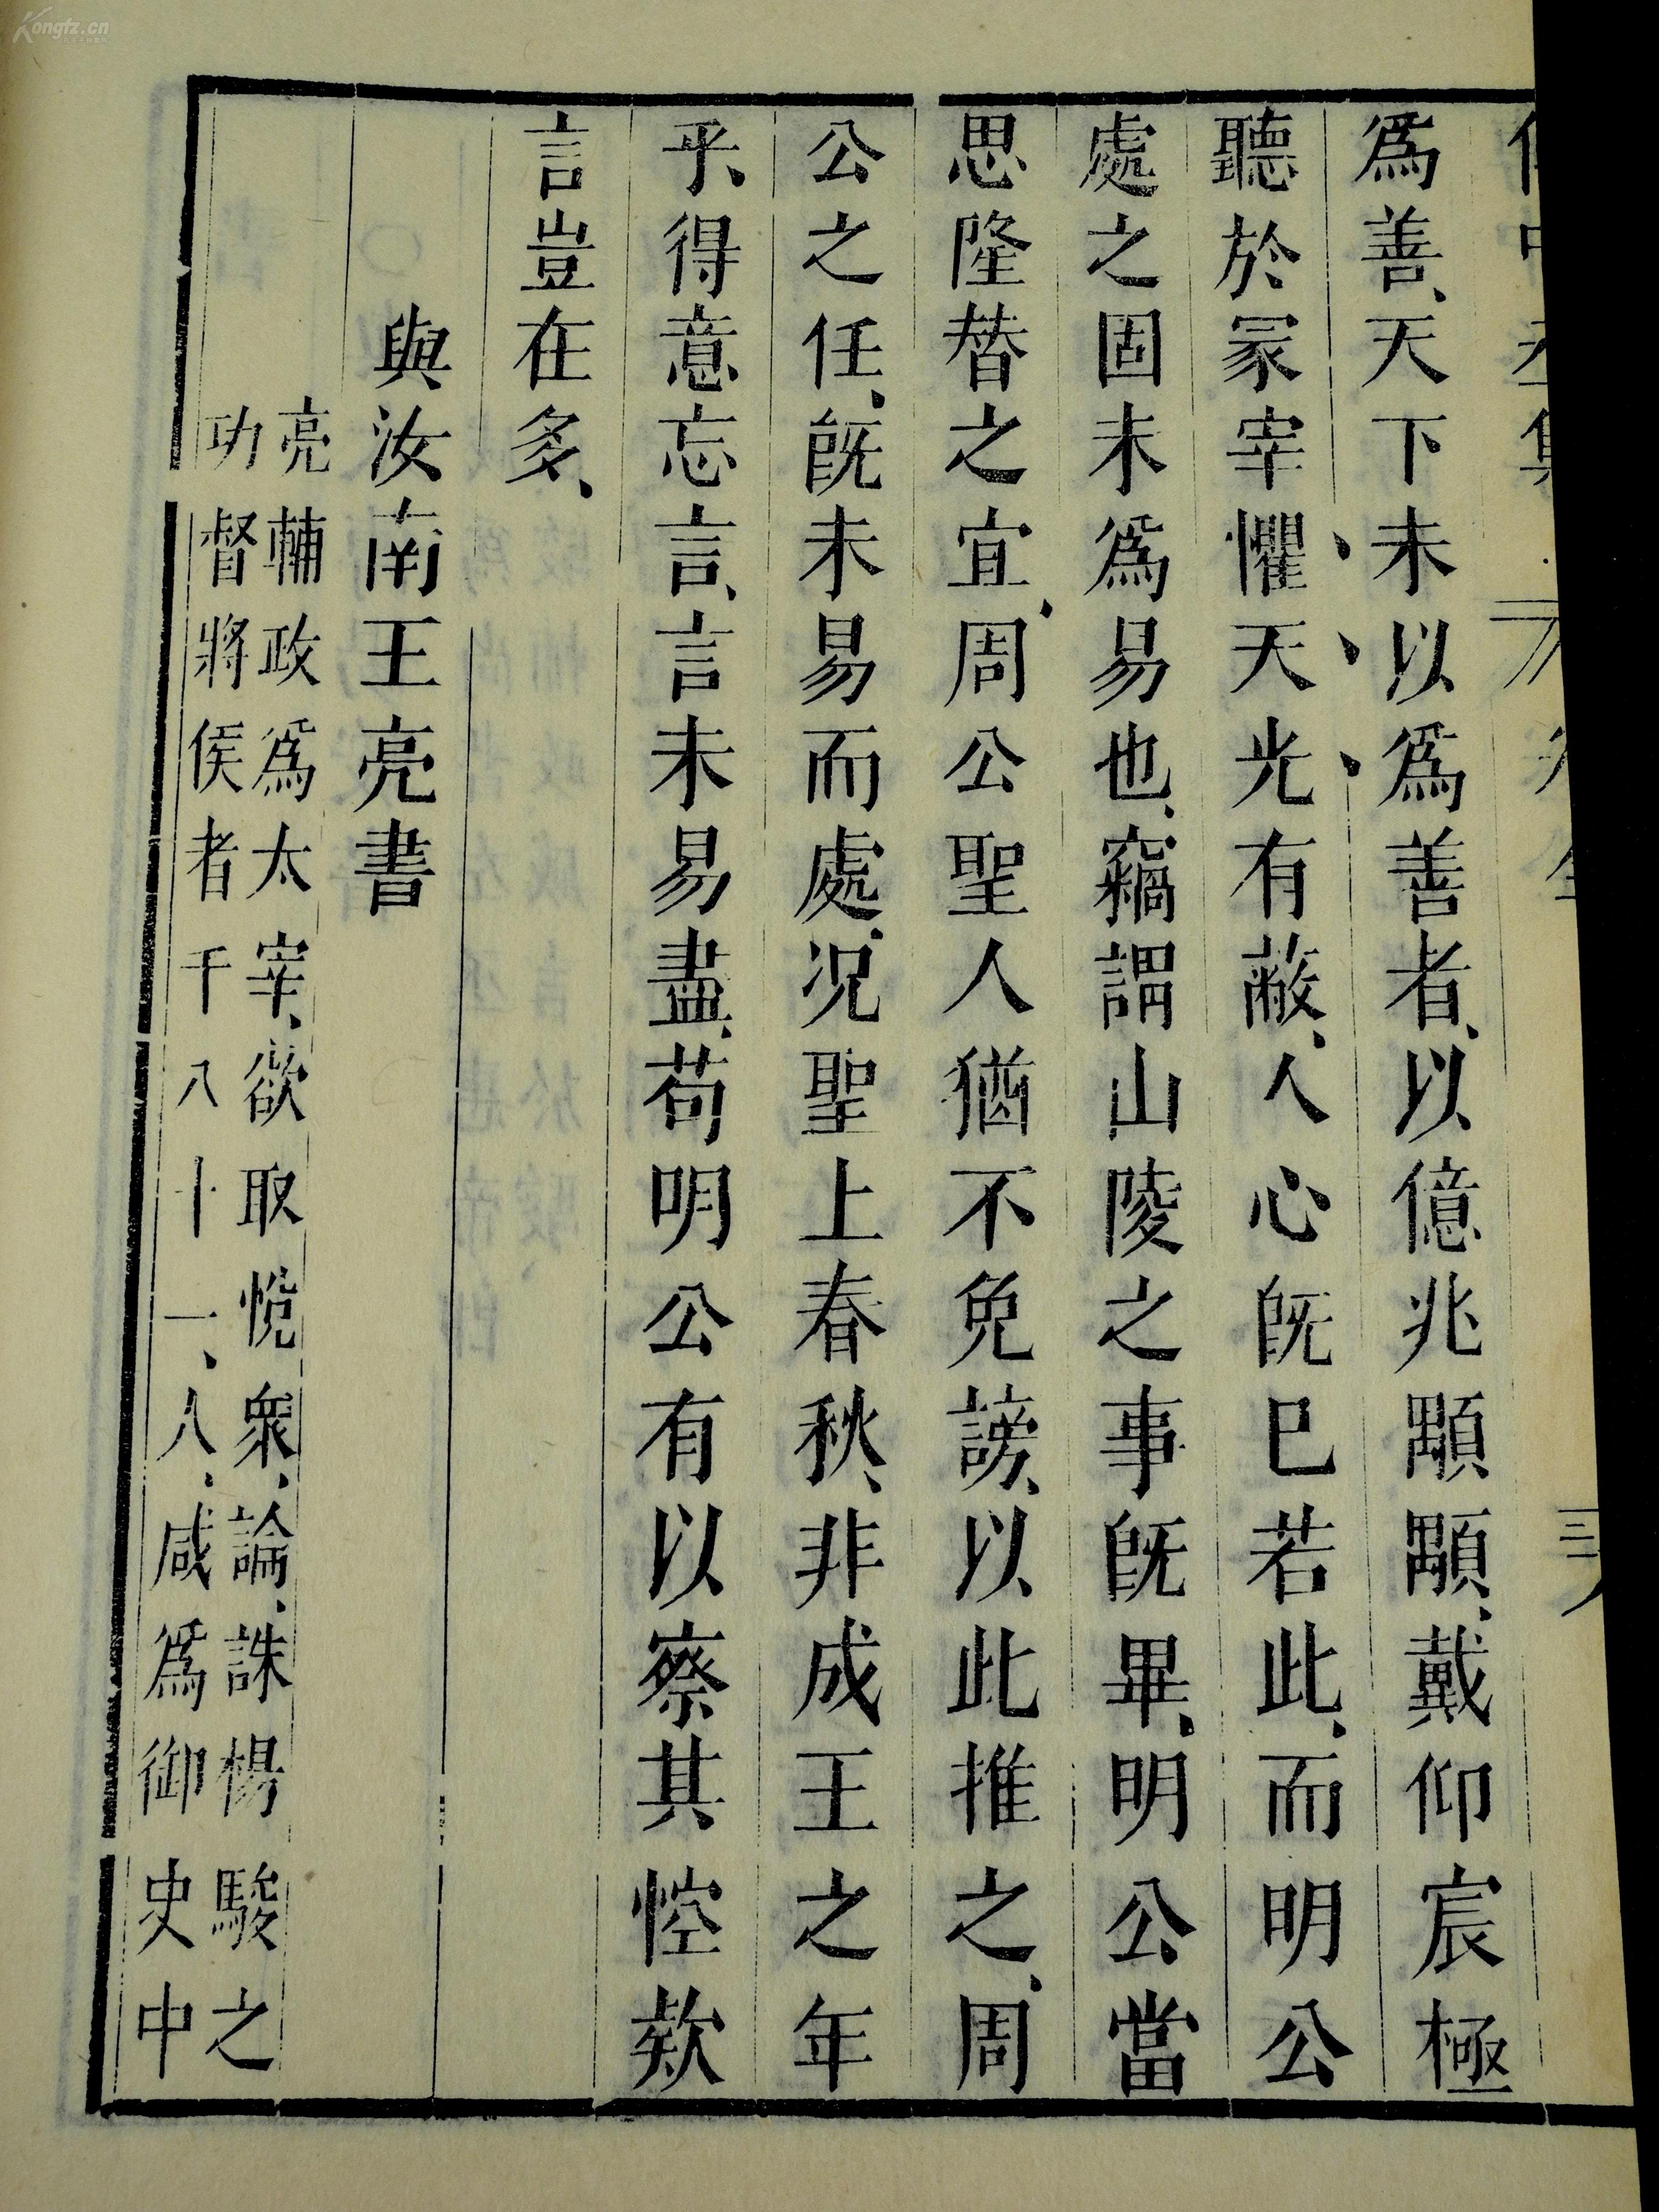 為善、天下未以為善者、以億兆顒顒、戴仰宸極
聽於冢宰懼、天、光、有蔽、人心既已若此、而明公
處之固未為易也、竊謂山陵之事既畢、明公當
思隆替之宜、周公聖人猶不免謗、以此推之、周
公之任、既未易而處、况聖上春秋、非成王之年
乎、得意忘言、言未易盡、苟明公有以察其悾欵
言豈在多、
與汝南王亮書
亮輔政為太宰、欲取悅衆、論、誅楊駿之
功督將侯者千八十一、人、咸為御史中
Kongfz.cn